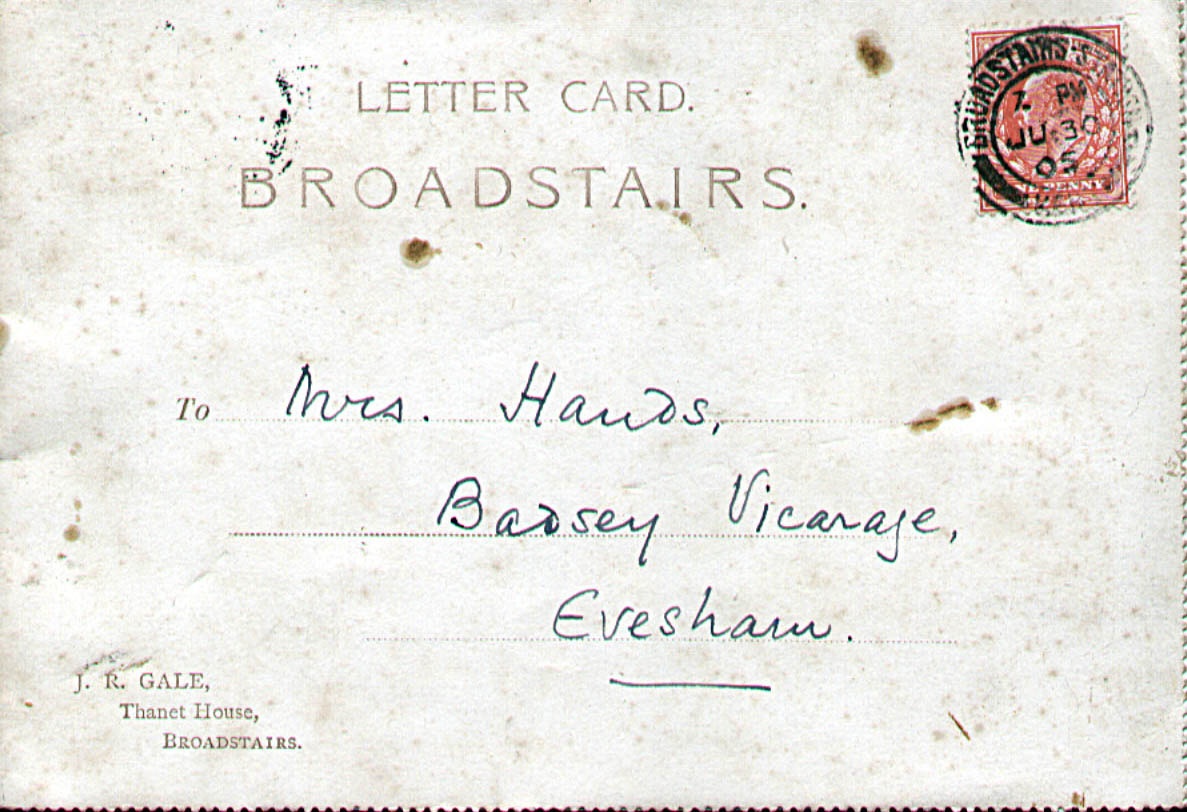 LETTER CARD.
BROADSTAIRS.
BROADSTAIRS
7. PM
JU. 30
05
PENNY
To Mrs. Hands,
Badsey Vicarage,
Evesham.
J. R. GALE,
Thanet House,
BROADSTAIRS.